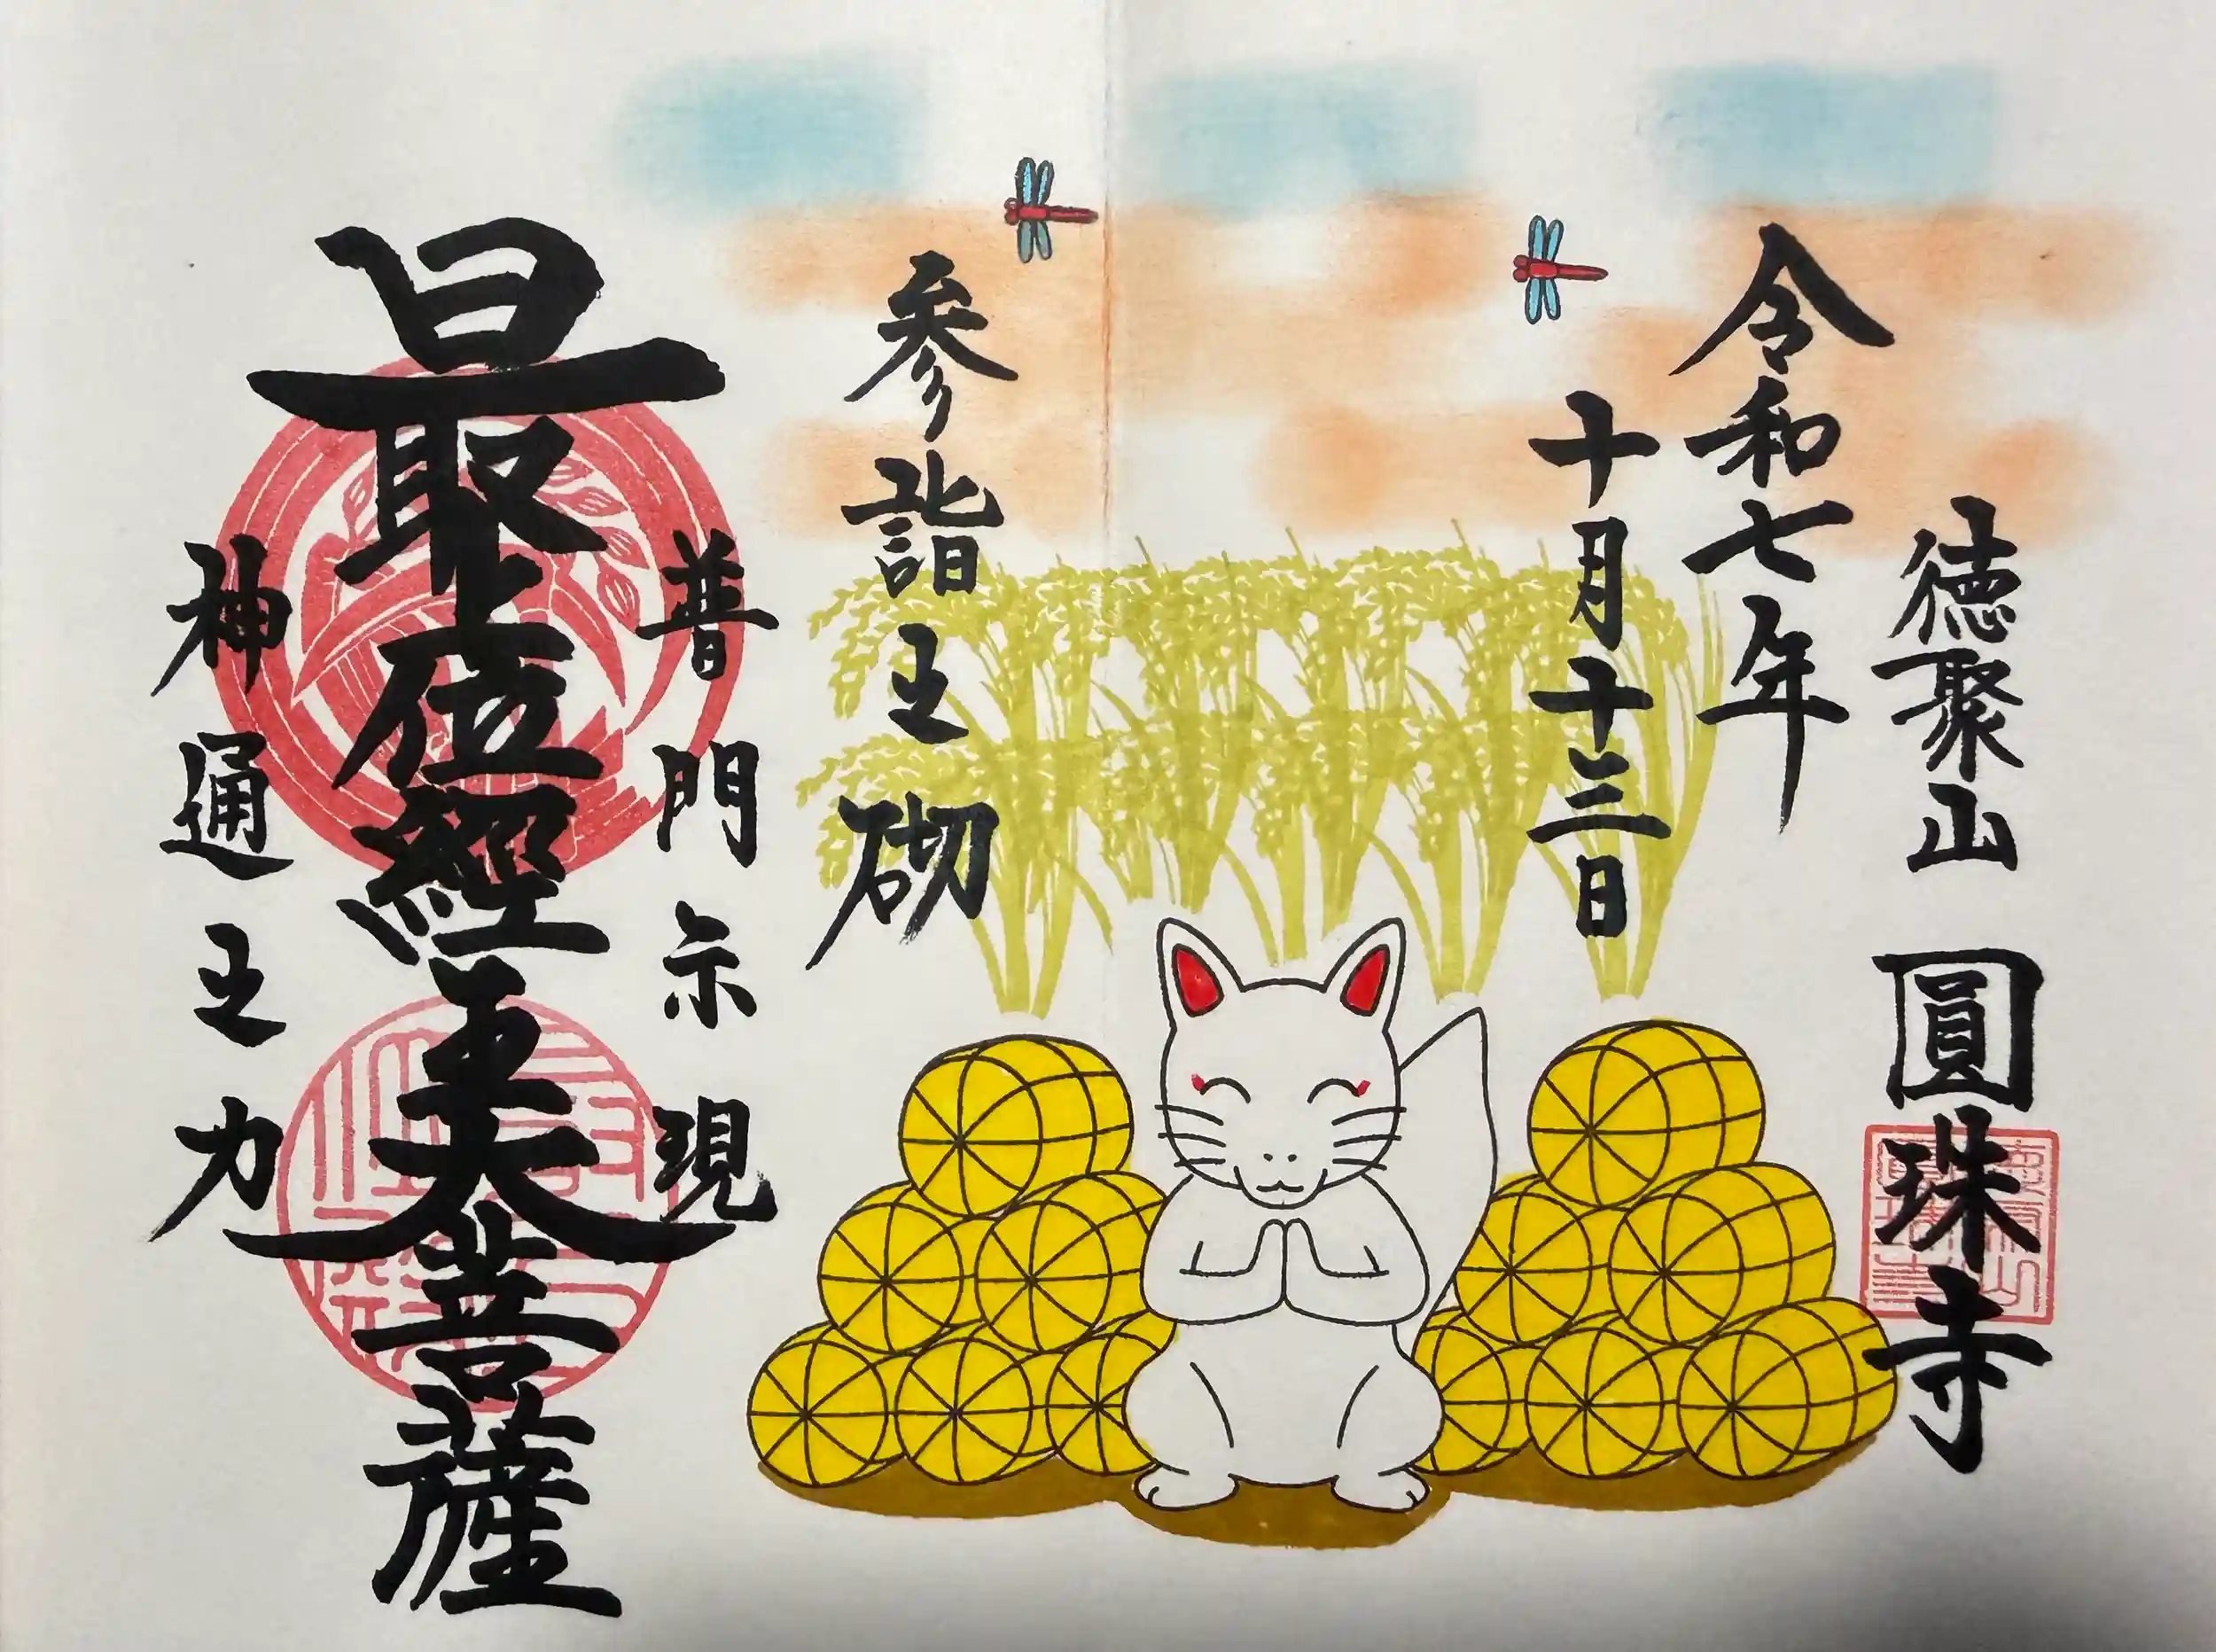 徳聚山 圓珠寺
令和七年
十月十三日
参詣之砌
普門示現
最上位經王大菩薩
神通之力